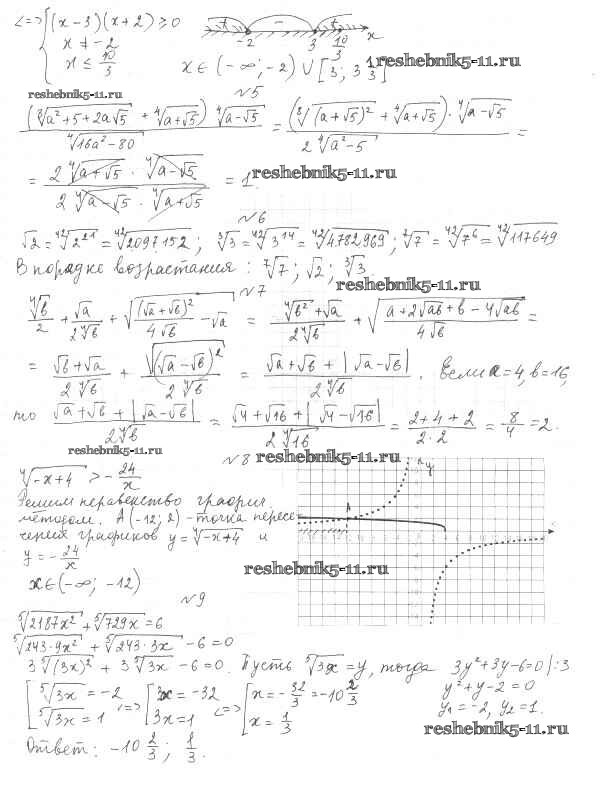 <=> { (x-3)(x+2) ≥ 0
x ≠ -2
x ≤ 10/3
+ - + -2 3 10/3 x
x ∈ (-∞; -2) ∪ [3; 3 1/3]
reshebnik5-11.ru
reshebnik5-11.ru
N5
(⁸√(a²+5+2a√5) + ⁴√(a+√5)) ⁴√(a-√5) / ⁴√(16a²-80) = (⁸√((a+√5)²) + ⁴√(a+√5)) · ⁴√(a-√5) / 2 ⁴√(a²-5) =
= 2 ⁴√(a+√5) · ⁴√(a-√5) / 2 ⁴√(a-√5) · ⁴√(a+√5) = 1.
reshebnik5-11.ru
N6
√2 = ⁴²√(2²¹) = ⁴²√2097152; ³√3 = ⁴²√(3¹⁴) = ⁴²√4782969; ⁷√7 = ⁴²√(7⁶) = ⁴²√117649
В порядке возрастания: ⁷√7; √2; ³√3.
reshebnik5-11.ru
N7
⁴√b / 2 + √a / 2⁴√b + √((√a+√b)² / 4√b - √a) = (⁴√b² + √a) / 2⁴√b + √((a+2√ab+b-4√ab) / 4√b) =
= (√b+√a) / 2⁴√b + √((√a-√b)²) / 2⁴√b = (√a+√b+|√a-√b|) / 2⁴√b. Если a=4, b=16,
то (√a+√b+|√a-√b|) / 2⁴√b = (√4+√16+|√4-√16|) / 2⁴√16 = (2+4+2) / 2·2 = 8/4 = 2.
reshebnik5-11.ru
N8
reshebnik5-11.ru
⁴√(-x+4) > -24/x
Решим неравенство графич.
методом. A(-12; 2) - точка пересе-
чения графиков y = ⁴√(-x+4) и
y = -24/x
x ∈ (-∞; -12)
A
y
reshebnik5-11.ru
N9
⁵√(2187x²) + ⁵√(729x) = 6
⁵√(243·9x²) + ⁵√(243·3x) - 6 = 0
3 ⁵√((3x)²) + 3 ⁵√(3x) - 6 = 0. Пусть ⁵√(3x) = y, тогда 3y²+3y-6=0 |:3
y²+y-2=0
y₁=-2, y₂=1.
[ ⁵√(3x) = -2 <=> [ 3x = -32 <=> [ x = -32/3 = -10 2/3
⁵√(3x) = 1 3x = 1 x = 1/3
reshebnik5-11.ru
Ответ: -10 2/3; 1/3.